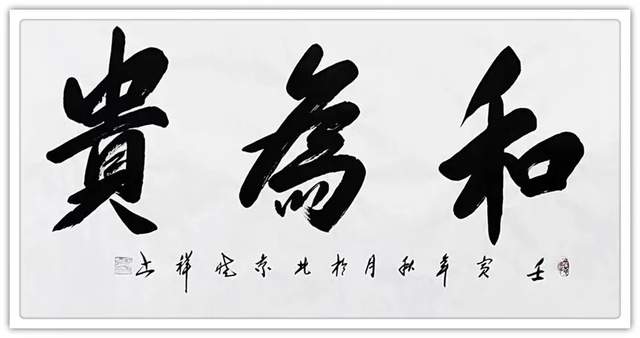 和為貴
壬寅年秋月於北京曉祥書